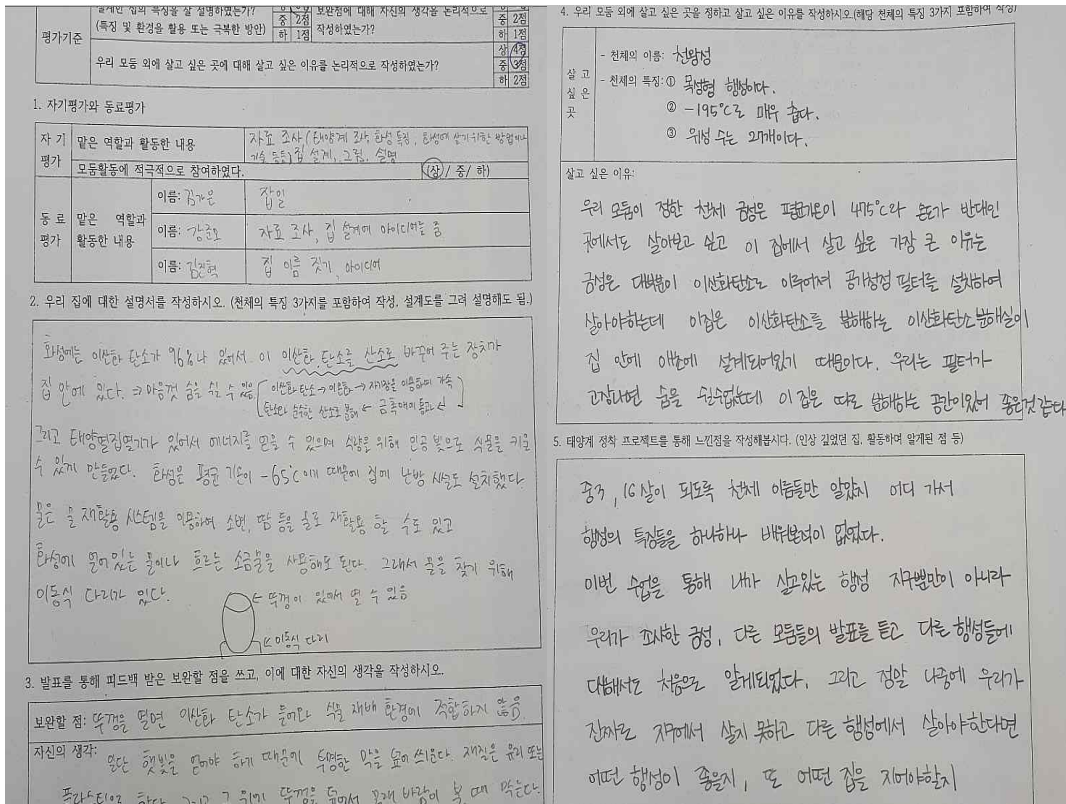 (특징 및 환경을 활용 또는 극복한 방안)
중 2점
하 1점
보완점에 대해 자신의 생각을 논리적으로
작성하였는가?
중 2점
하 1점
평가기준
우리 모둠 외에 살고 싶은 곳에 대해 살고 싶은 이유를 논리적으로 작성하였는가?
상 4점
중 3점
하 2점
1. 자기평가와 동료평가
자 기 평가
맡은 역할과 활동한 내용
자료 조사(태양계 조사, 화성 특징, 화성에 살기 위한 방법이나
기술 등등) 집 설계, 그림, 설명
모둠활동에 적극적으로 참여하였다.
(상/ 중/ 하)
동 료 평가
맡은 역할과 활동한 내용
이름: 김가은
잡일
이름:
자료 조사, 집 설계에 아이디어를 줌
이름:
집 이름 짓기, 아이디어
2. 우리 집에 대한 설명서를 작성하시오. (천체의 특징 3가지를 포함하여 작성, 설계도를 그려 설명해도 됨.)
화성에는 이산화 탄소가 96%나 있어서 이 이산화 탄소를 산소로 바꾸어 주는 장치가
집 안에 있다. ⇒ 마음껏 숨을 쉴 수 있음
이산화 탄소 → 이온화 → 자기장을 이용하여 가속
탄소와 순수한 산소로 분해 ← 금속막에 통과 ↵
그리고 태양열집열기가 있어서 에너지를 얻을 수 있으며 식량을 위해 인공 빛으로 식물을 키울
수 있게 만들었다. 화성은 평균 기온이 -65℃이기 때문에 집에 난방 시설도 설치했다.
물은 물 재활용 시스템을 이용하여 소변, 땀 등을 물로 재활용 할 수도 있고
화성에 얼어있는 물이나 흐르는 소금물을 사용해도 된다. 그래서 물을 찾기 위해
이동식 다리가 있다.
← 뚜껑이 있어서 열 수 있음
← 이동식 다리
3. 발표를 통해 피드백 받은 보완할 점을 쓰고, 이에 대한 자신의 생각을 작성하시오.
보완할 점: 뚜껑을 열면 이산화 탄소가 들어와 식물 재배 환경에 적합하지 않음
자신의 생각: 일단 햇빛을 얻어야 하기 때문에 투명한 막을 덮어 씌운다. 재질은 유리 또는
플라스틱으로 한다. 그리고 그 위에 뚜껑을 덮어서 모래 바람이 불 때 막는다.
4. 우리 모둠 외에 살고 싶은 곳을 정하고 살고 싶은 이유를 작성하시오.(해당 천체의 특징 3가지 포함하여 작성)
살고 싶은 곳
- 천체의 이름: 천왕성
- 천체의 특징: ① 목성형 행성이다.
② -195℃로 매우 춥다.
③ 위성 수는 27개이다.
살고 싶은 이유:
우리 모둠이 정한 천체 금성은 평균기온이 475℃라 온도가 반대인
곳에서도 살아보고 싶고 이 집에서 살고 싶은 가장 큰 이유는
금성은 대부분이 이산화탄소로 이루어져 공기청정 필터를 설치하여
살아야하는데 이집은 이산화탄소를 분해하는 이산화탄소분해실이
집 안에 애초에 설계되어있기 때문이다. 우리는 필터가
고장나면 숨을 쉴수없는데 이 집은 따로 분해하는 공간이있어 좋은것 같다
5. 태양계 정착 프로젝트를 통해 느낀점을 작성해봅시다. (인상 깊었던 집, 활동하며 알게된 점 등)
중3, 16살이 되도록 천체 이름들만 알았지 어디 가서
행성의 특징들을 하나하나 배워본적이 없었다.
이번 수업을 통해 내가 살고있는 행성 지구뿐만이 아니라
우리가 조사한 금성, 다른 모둠들의 발표를 듣고 다른 행성들에
대해서도 처음으로 알게되었다. 그리고 정말 나중에 우리가
진짜로 지구에서 살지 못하고 다른 행성에서 살아야한다면
어떤 행성이 좋을지, 또 어떤 집을 지어야할지